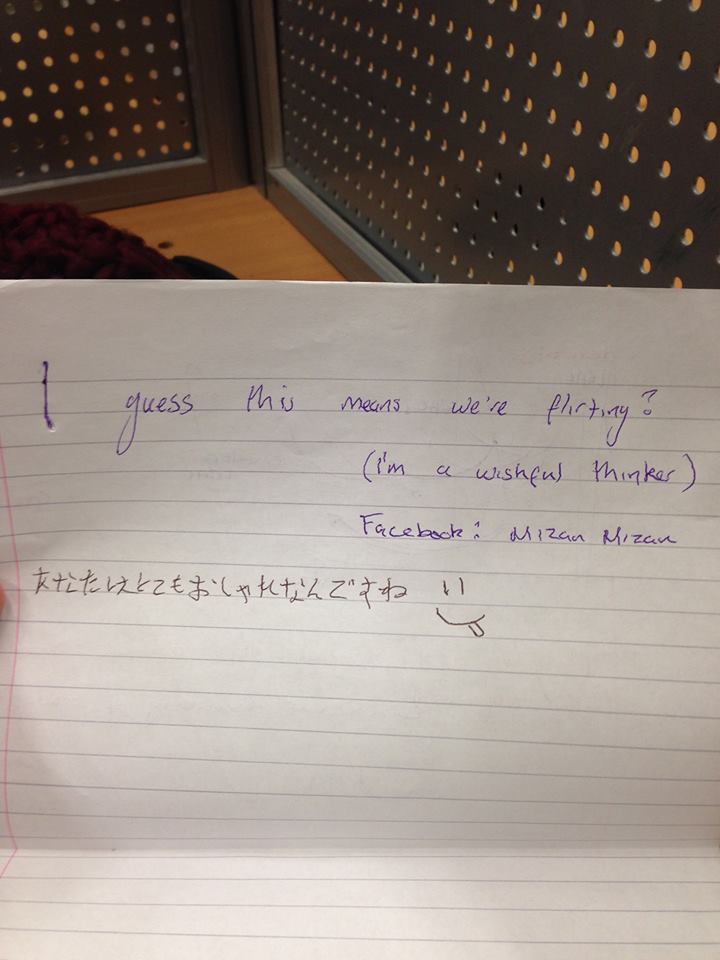 I guess this means we're flirting?
(I'm a wishful thinker)
Facebook: Mizan Mizan
あなたはとてもおしゃれなんですね